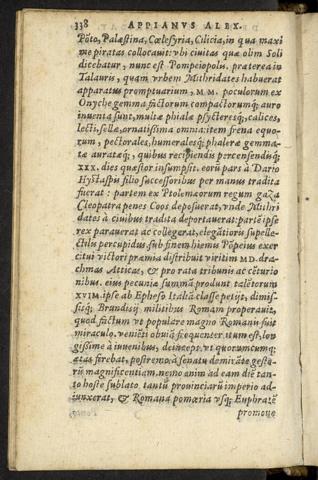 338 APPIANVS ALEX.
Pōto, Palæstina, Cœlesyria, Cilicia, in qua maxi
me piratas collocauit: vbi ciuitas quæ olim Soli
dicebatur, nunc est Pompeiopolis. præterea in
Talauris, quam vrbem Mithridates habuerat
apparatus promptuarium, M.M. poculorum ex
Onyche gemma factorum compactorumq; auro
inuenta sunt, multæ phialæ psycteresq;, calices,
lecti, sellæ, ornatissima omnia: item frena equo-
rum, pectorales, humeralesq; phaleræ gemma-
tæ auratæq;, quibus recipiendis percensendisq;
XXX. dies quæstor insumpsit. eorū pars à Dario
Hystaspis filio successoribus per manus tradita
fuerat: partem ex Ptolemæorum regum gaza
Cleopatra penes Coos deposuerat, vnde Mithri
dates à ciuibus tradita deportauerat: partē ipse
rex parauerat ac collegerat, elegātioris supelle-
ctilis percupidus. sub finem hiemis Pōpeius exer
citui victori præmia distribuit viritim MD. dra-
chmas Atticas, & pro rata tribunis ac cēturio
nibus. eius pecuniæ summā produnt talētorum
XVIM. ipse ab Epheso Italiā classe petijt, dimis-
sisq; Brundisij militibus Romam properauit,
quod factum vt populare magno Romanis fuit
miraculo. veniēti obuiā frequenter itum est, lon
gissime à iuuenibus, deinceps vt quorumcumq;
ætas ferebat, postremo à senatu admirāte gesto-
rū magnificentiam. nemo enim ad eam diē tan-
to hoste sublato tantū prouinciarū imperio ad-
iunxerat, & Romana pomœria vsq; Euphratē
promoue